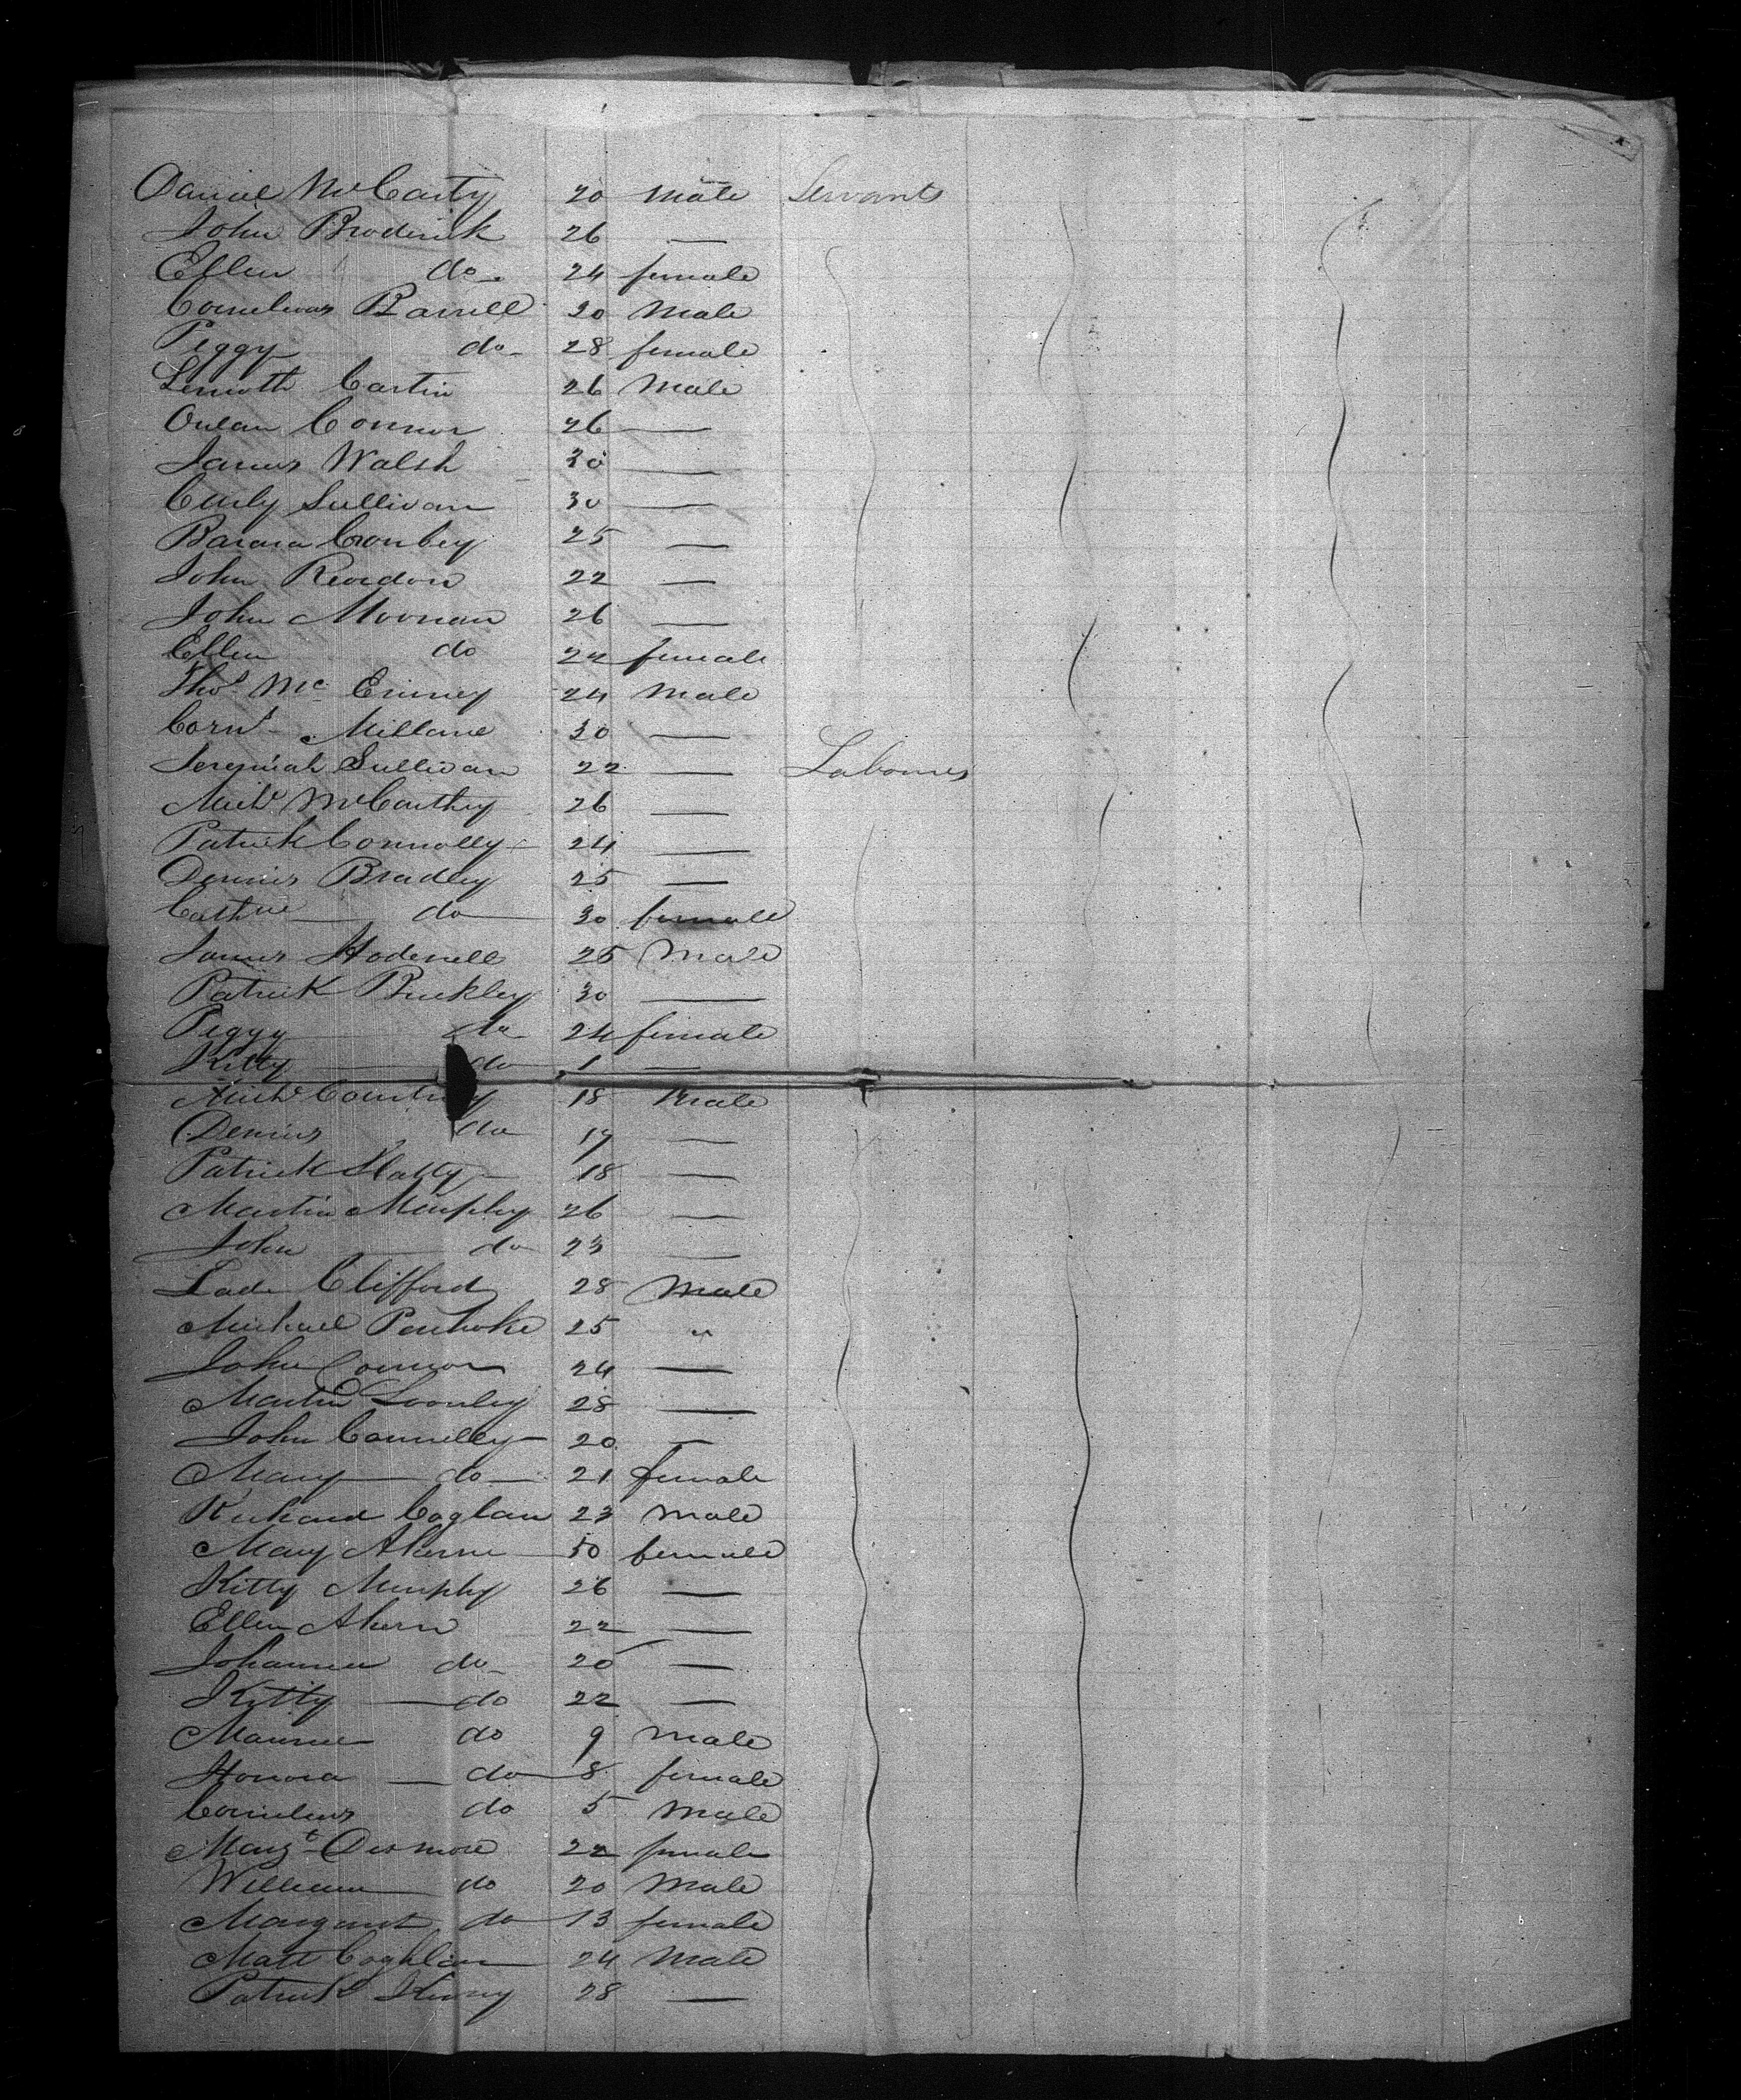 Daniel McCarty 20 Male Servants
John Broderick 26 —
Ellen do. 24 female
Cornelious Barrell 30 Male
Peggy do 28 female
Cartin 26 Male
Connor 26 —
James Walsh 30 —
Curly Sullivan 30 —
25 —
John Reordon 22 —
John Moonan 26 —
Ellen do 22 female
Thos Mc Enney 24 Male
Corns Millane 30 —
Jeremiah Sullivan 22 — Labourers
Michl McCarthy 26 —
Patrick Connolly 24 —
Dennis Bradley 25 —
Cathne do 30 female
James Hodenell 25 Male
Patrick Buckley 30 —
Peggy do 24 female
Kitty do 1 —
Michl Courtney 18 Male
Dennis do 17 —
Patrick Slatty 18 —
Martin Murphy 26 —
John do 23 —
Clifford 28 Male
Michael 25 "
John Connor 24 —
Martin 28 —
John Connelly 20 —
Mary do 21 female
Richard Coglan 23 Male
Mary Aherne 50 female
Kitty Murphy 26 —
Ellen Ahern 22 —
Johanna do 20 —
Kitty do 22 —
Maurice do 9 male
Honora do 8 female
Cornelius do 5 Male
Margt Desmore 22 female
William do 20 Male
Margaret do 13 female
Matt Coghlan 24 Male
Patrick 28 —